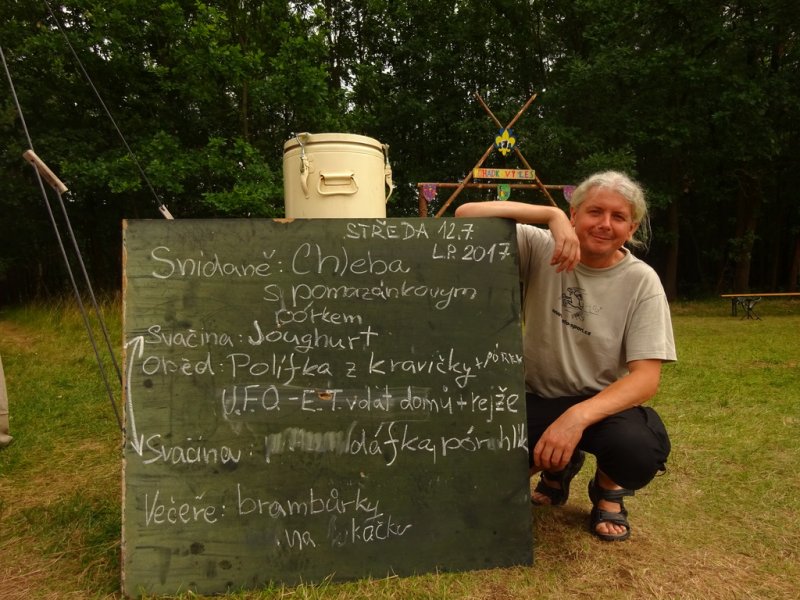 STŘEDA 12.7
L.P. 2017
Snídaně: Chleba
s pomazánkovým
pórkem
Svačina: Joughurt
Oběd: Polífka z kravičky + PÓREK
U.F.O. - E.T. vdát domů + rejže
Svačina: dáfka, pór
Večeře: brambůrky
na